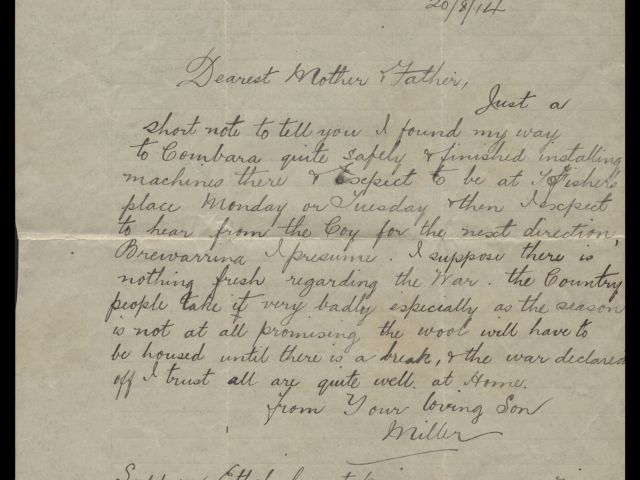 20/8/14
Dearest Mother & Father,
Just a
short note to tell you I found my way
to Combara quite safely & finished installing
machines there & Escpect to be at Fishers
place Monday or Tuesday & then I escpect
to hear from the Coy for the next direction,
Brewarrina I presume. I suppose there is
nothing fresh regarding the War. the Country
people take it very badly especially as the season
is not at all promising the wool will have to
be housed until there is a break, & the war declared
off I trust all are quite well. at Home.
From Your loving Son
Miller